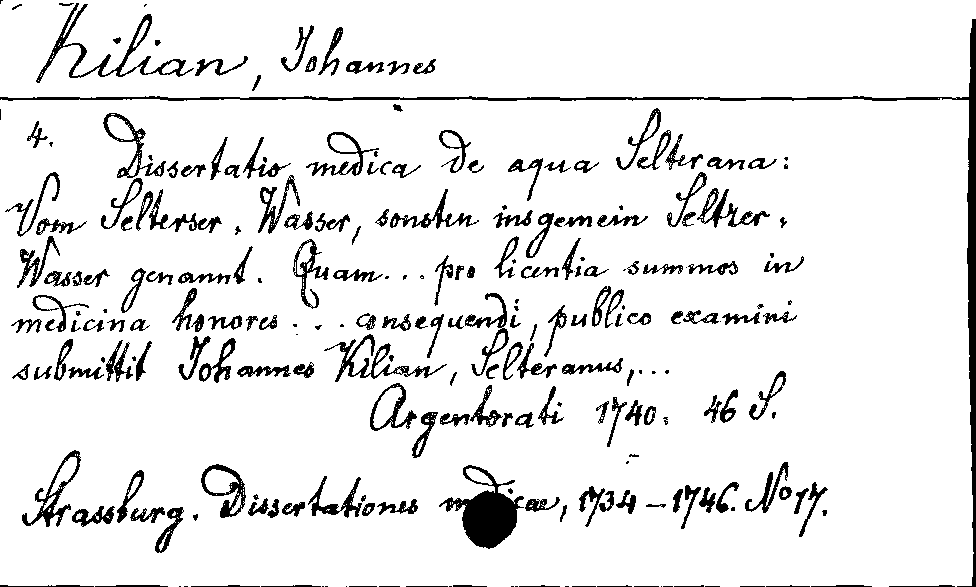 Kilian, Johannes
4. Dissertatio medica de aqua Selterana:
Vom Selterser-Wasser, sonsten insgemein Seltzer-
Wasser genannt. Quam... pro licentia summos in
medicina honores ... consequendi, publico examini
submittit Johannes Kilian, Selteranus,...
Argentorati 1740. 46 S.
Strassburg. Dissertationes medicae, 1734-1746. No 17.